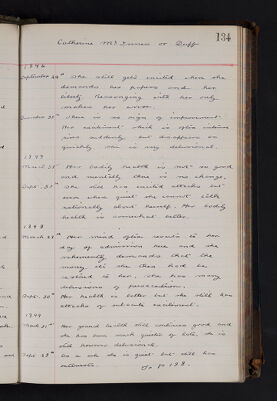 134
Catherine McInnes or Duff
1896
September 29th She still gets excited when she
demands her papers and her
liberty. Reasoning with her only
makes her worse.
December 31st There is no sign of improvement.
Her excitement which is often
comes suddenly but disappears as
quickly. She is very delusional.
1897
March 31st Her bodily health is not so good
and mentally there is no change.
Sept. 30th She still has excited attacks but
even when quiet she cannot talk
rationally about herself. Her bodily
health is somewhat better.
1898
March 29th Her mind often reverts to her
day of admission here and she
vehemently demands that the
money etc she then had be
restored to her. She has many
delusions of persecution.
Sept. 30th Her health is better but she still has
attacks of subacute excitement.
1899
March 31st Her general health still continues good and
she has been much quieter of late. She is
still however delusional.
Sept. 28th As a rule she is quiet but still has
outbursts.
To p 198.